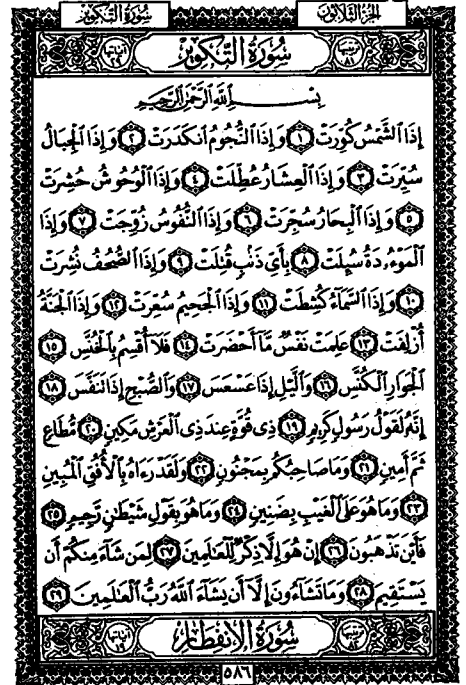 الجزء الثلاثون سُورَةُ التَّكْوِيرِ
ترتيبها ٨١ سُورَةُ التَّكْوِيرِ آياتها ٢٩
بِسْمِ ٱللَّهِ ٱلرَّحْمَٰنِ ٱلرَّحِيمِ
إِذَا ٱلشَّمْسُ كُوِّرَتْ ١ وَإِذَا ٱلنُّجُومُ ٱنكَدَرَتْ ٢ وَإِذَا ٱلْجِبَالُ
سُيِّرَتْ ٣ وَإِذَا ٱلْعِشَارُ عُطِّلَتْ ٤ وَإِذَا ٱلْوُحُوشُ حُشِرَتْ
٥ وَإِذَا ٱلْبِحَارُ سُجِّرَتْ ٦ وَإِذَا ٱلنُّفُوسُ زُوِّجَتْ ٧ وَإِذَا
ٱلْمَوْءُۥدَةُ سُئِلَتْ ٨ بِأَيِّ ذَنۢبٍ قُتِلَتْ ٩ وَإِذَا ٱلصُّحُفُ نُشِرَتْ
١٠ وَإِذَا ٱلسَّمَآءُ كُشِطَتْ ١١ وَإِذَا ٱلْجَحِيمُ سُعِّرَتْ ١٢ وَإِذَا ٱلْجَنَّةُ
أُزْلِفَتْ ١٣ عَلِمَتْ نَفْسٌ مَّآ أَحْضَرَتْ ١٤ فَلَآ أُقْسِمُ بِٱلْخُنَّسِ ١٥
ٱلْجَوَارِ ٱلْكُنَّسِ ١٦ وَٱلَّيْلِ إِذَا عَسْعَسَ ١٧ وَٱلصُّبْحِ إِذَا تَنَفَّسَ ١٨
إِنَّهُۥ لَقَوْلُ رَسُولٍ كَرِيمٍ ١٩ ذِي قُوَّةٍ عِندَ ذِي ٱلْعَرْشِ مَكِينٍ ٢٠ مُّطَاعٍ
ثَمَّ أَمِينٍ ٢١ وَمَا صَاحِبُكُم بِمَجْنُونٍ ٢٢ وَلَقَدْ رَءَاهُ بِٱلْأُفُقِ ٱلْمُبِينِ
٢٣ وَمَا هُوَ عَلَى ٱلْغَيْبِ بِضَنِينٍ ٢٤ وَمَا هُوَ بِقَوْلِ شَيْطَٰنٍ رَّجِيمٍ ٢٥
فَأَيْنَ تَذْهَبُونَ ٢٦ إِنْ هُوَ إِلَّا ذِكْرٌ لِّلْعَٰلَمِينَ ٢٧ لِمَن شَآءَ مِنكُمْ أَن
يَسْتَقِيمَ ٢٨ وَمَا تَشَآءُونَ إِلَّآ أَن يَشَآءَ ٱللَّهُ رَبُّ ٱلْعَٰلَمِينَ ٢٩
ترتيبها ٨٢ سُورَةُ الِانفِطَارِ آياتها ١٩
٥٨٦